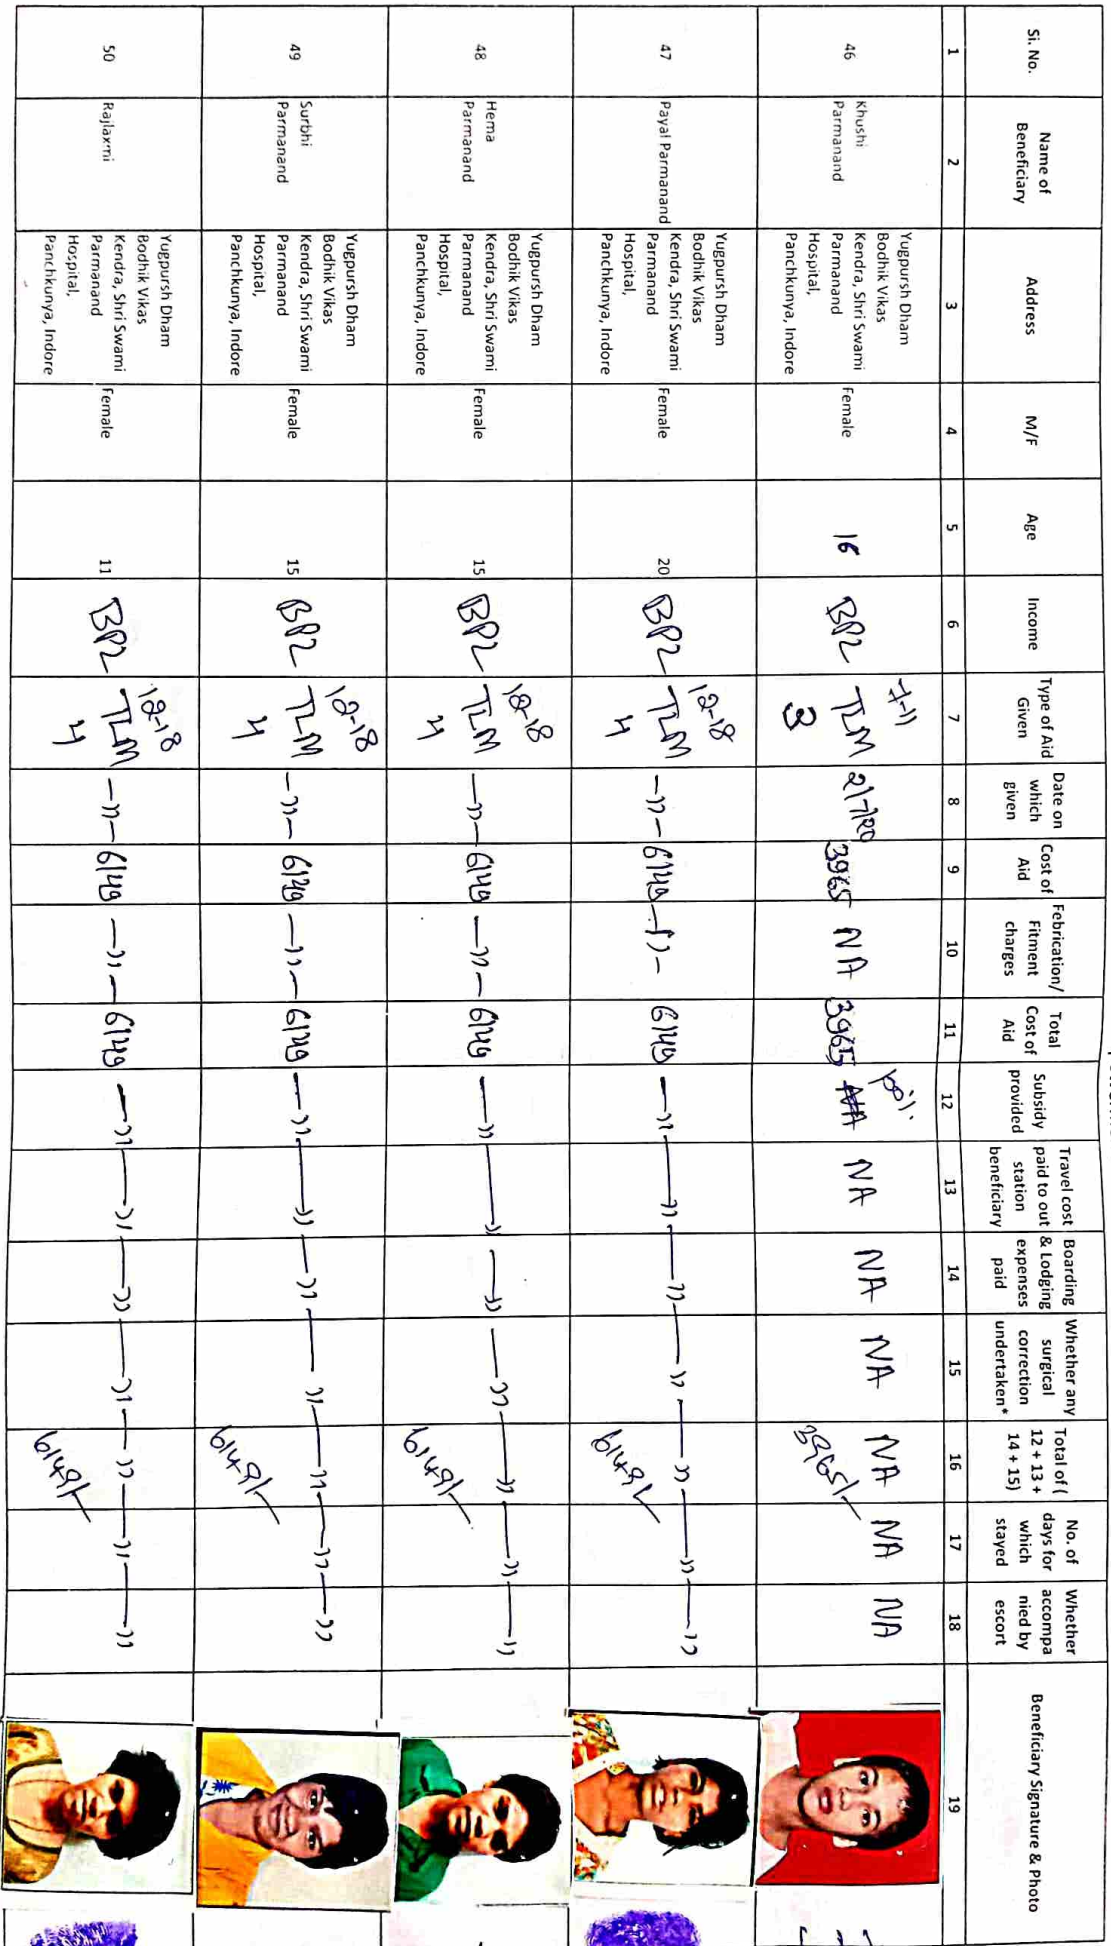 Si. No.
Name of
Beneficiary
Address
M/F
Age
Income
Type of Aid
Given
Date on
which
given
Cost of
Aid
Febrication/
Fitment
charges
Total
Cost of
Aid
Subsidy
provided
Travel cost
paid to out
station
beneficiary
Boarding
& Lodging
expenses
paid
Whether any
surgical
correction
undertaken*
Total of (
12 + 13 +
14 + 15)
No. of
days for
which
stayed
Whether
accompa
nied by
escort
Beneficiary Signature & Photo
1 2 3 4 5 6 7 8 9 10 11 12 13 14 15 16 17 18 19
46
Khushi
Parmanand
Yugpursh Dham
Bodhik Vikas
Kendra, Shri Swami
Parmanand
Hospital,
Panchkunya, Indore
Female
16
BPL
7-11
TLM
3
2/7/20
3965
NA
3965
100%
NA
NA
NA
NA
NA
3965/-
NA
NA
47
Payal Parmanand
Yugpursh Dham
Bodhik Vikas
Kendra, Shri Swami
Parmanand
Hospital,
Panchkunya, Indore
Female
20
BPL
12-18
TLM
4
—〃—
6149
—〃—
6149
—〃—〃—〃—〃—〃—〃—〃
6149/-
48
Hema
Parmanand
Yugpursh Dham
Bodhik Vikas
Kendra, Shri Swami
Parmanand
Hospital,
Panchkunya, Indore
Female
15
BPL
12-18
TLM
4
—〃—
6149
—〃—
6149
—〃—〃—〃—〃—〃—〃—〃
6149/-
49
Surbhi
Parmanand
Yugpursh Dham
Bodhik Vikas
Kendra, Shri Swami
Parmanand
Hospital,
Panchkunya, Indore
Female
15
BPL
12-18
TLM
4
—〃—
6149
—〃—
6149
—〃—〃—〃—〃—〃—〃—〃
6149/-
50
Rajlaxmi
Yugpursh Dham
Bodhik Vikas
Kendra, Shri Swami
Parmanand
Hospital,
Panchkunya, Indore
Female
11
BPL
12-18
TLM
4
—〃—
6149
—〃—
6149
—〃—〃—〃—〃—〃—〃—〃
6149/-